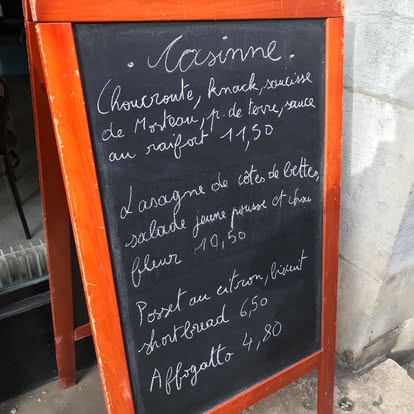 . Casinne .
Choucroute, knack, saucisse
de Morteau, p. de terre, sauce
au raifort 11,50
Lasagne de côtes de bettes,
salade jeune pousse et chou
fleur 10,50
Posset au citron, biscuit
shortbread 6,50
Affogatto 4,80